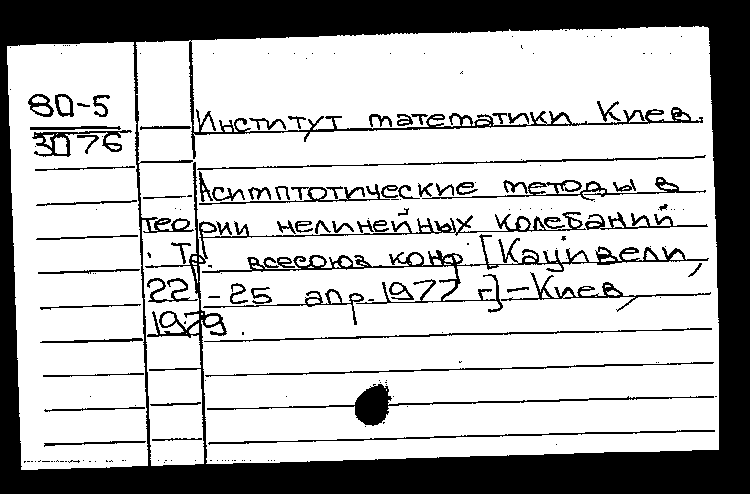 80-5
3076
Институт математики. Киев.
Асимптотические методы в
теории нелинейных колебаний
. Тр. всесоюз конф [Кацивели,
22-25 апр. 1977 г.]-Киев,
1979.